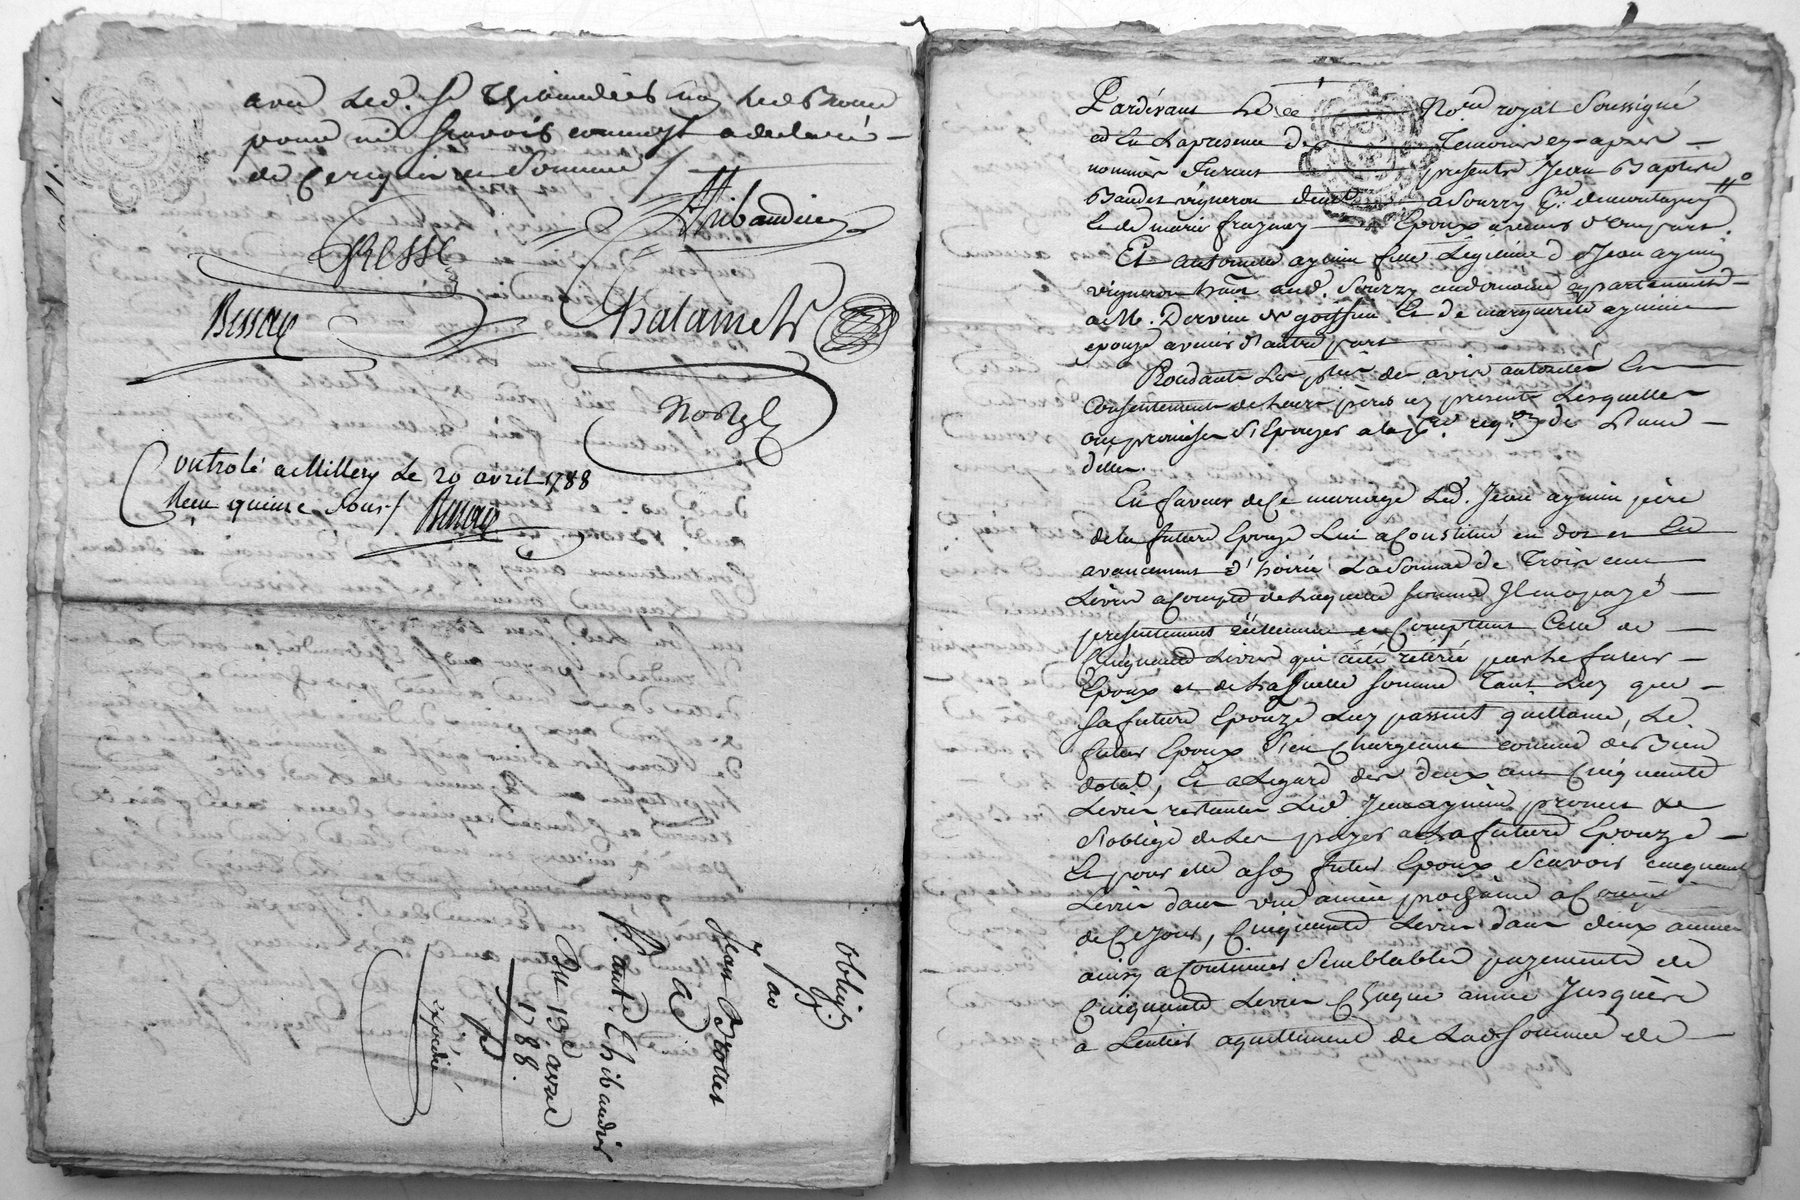 avec led. Sr Thibaudier non led. Brottet
pour ne sçavoir comme il a déclaré
de ce enquis et sommé /
Thibaudier
GRESSE
Bessay
Chalamel
Nortzly
Controlé a Millery Le 20 avril 1788
Reçu quinze sous / Bessay
oblig.
po 20
Jean Brottet
a Sr
ant. Thibaudier
Du 13e avril
1788.
expédié
Pardevant Le No.re royal Soussigné
et En La presence des Temoins cy-après
nommés furent presents Jean Baptiste
Baudet vigneron demt a Sourzy psse de montagny
Et de marie Epoux avenir d'une part.
Et antoinette aymin fille Légitime de Jean aymin
vigneron habt aud. Sourzy au domaine appartenant
a M. De goiffieu Et de marguerite
epouze avenir d'autre part
Procedants Les pties de avis autorité Et
Consentement de Leurs pères icy presents Lesquelles
ont promis de S'Epouzer a la req.on de L'une
d'elles.
En faveur de Ce mariage Led. Jean aymin père
de la future Epouze Lui a Constitué en dot et En
avancement d'hoirie La Somme de Trois cent
Livres a Compte de Laquelle Somme Il en a payé
presentement réellement et Comptant Celle de
Cinquante Livres qui a été retirée par Le futur
Epoux et de Laquelle Somme Tant Luy que
Sa future Epouze Luy passent quittance, Le
futur Epoux S'en Chargeant comme de Bien
dotal, Et a L'egard des deux cent Cinquante
Livres restantes Led. Jean aymin promet et
S'oblige de Les payer a La future Epouze
Et pour elle a son futur Epoux Scavoir cinquante
Livres dans une année prochaine a Compter
de Ce Jour, Cinquante Livres dans deux années
ainsy a Continuer Semblables payements de
Cinquante Livres Chaque année Jusques
a L'entier aquittement de Lad. Somme de